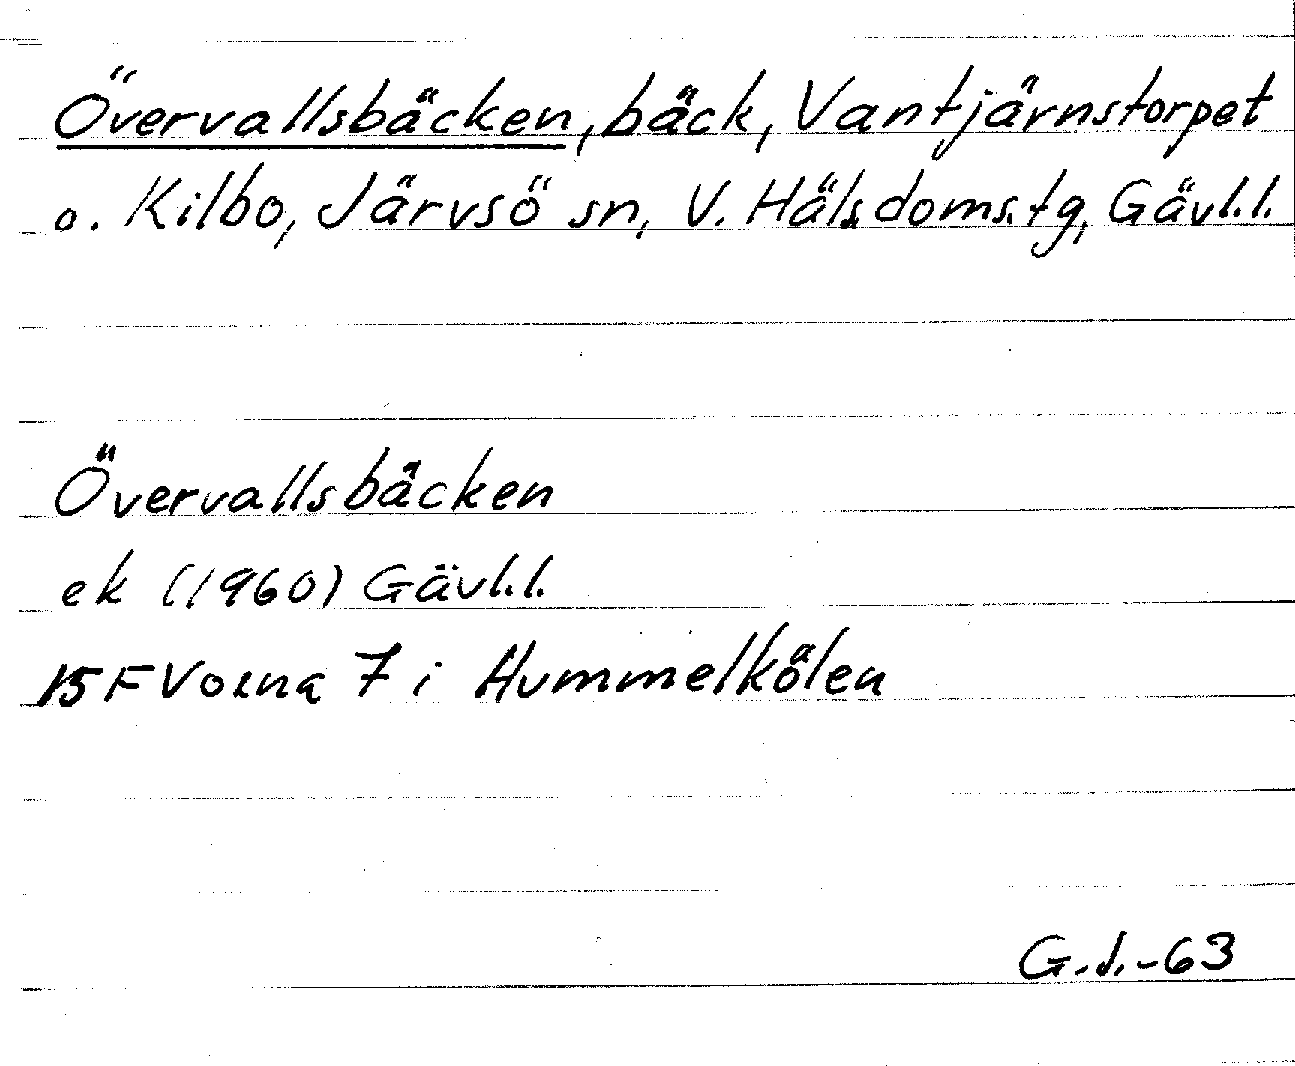 Övervallsbäcken, bäck, Vantjärnstorpet
o. Kilbo, Järvsö sn, V. Häls.doms.tg, Gävl.l.
Övervallsbäcken
ek (1960) Gävl.l.
15F Voxna 7 i Hummelkölen
G.J.-63